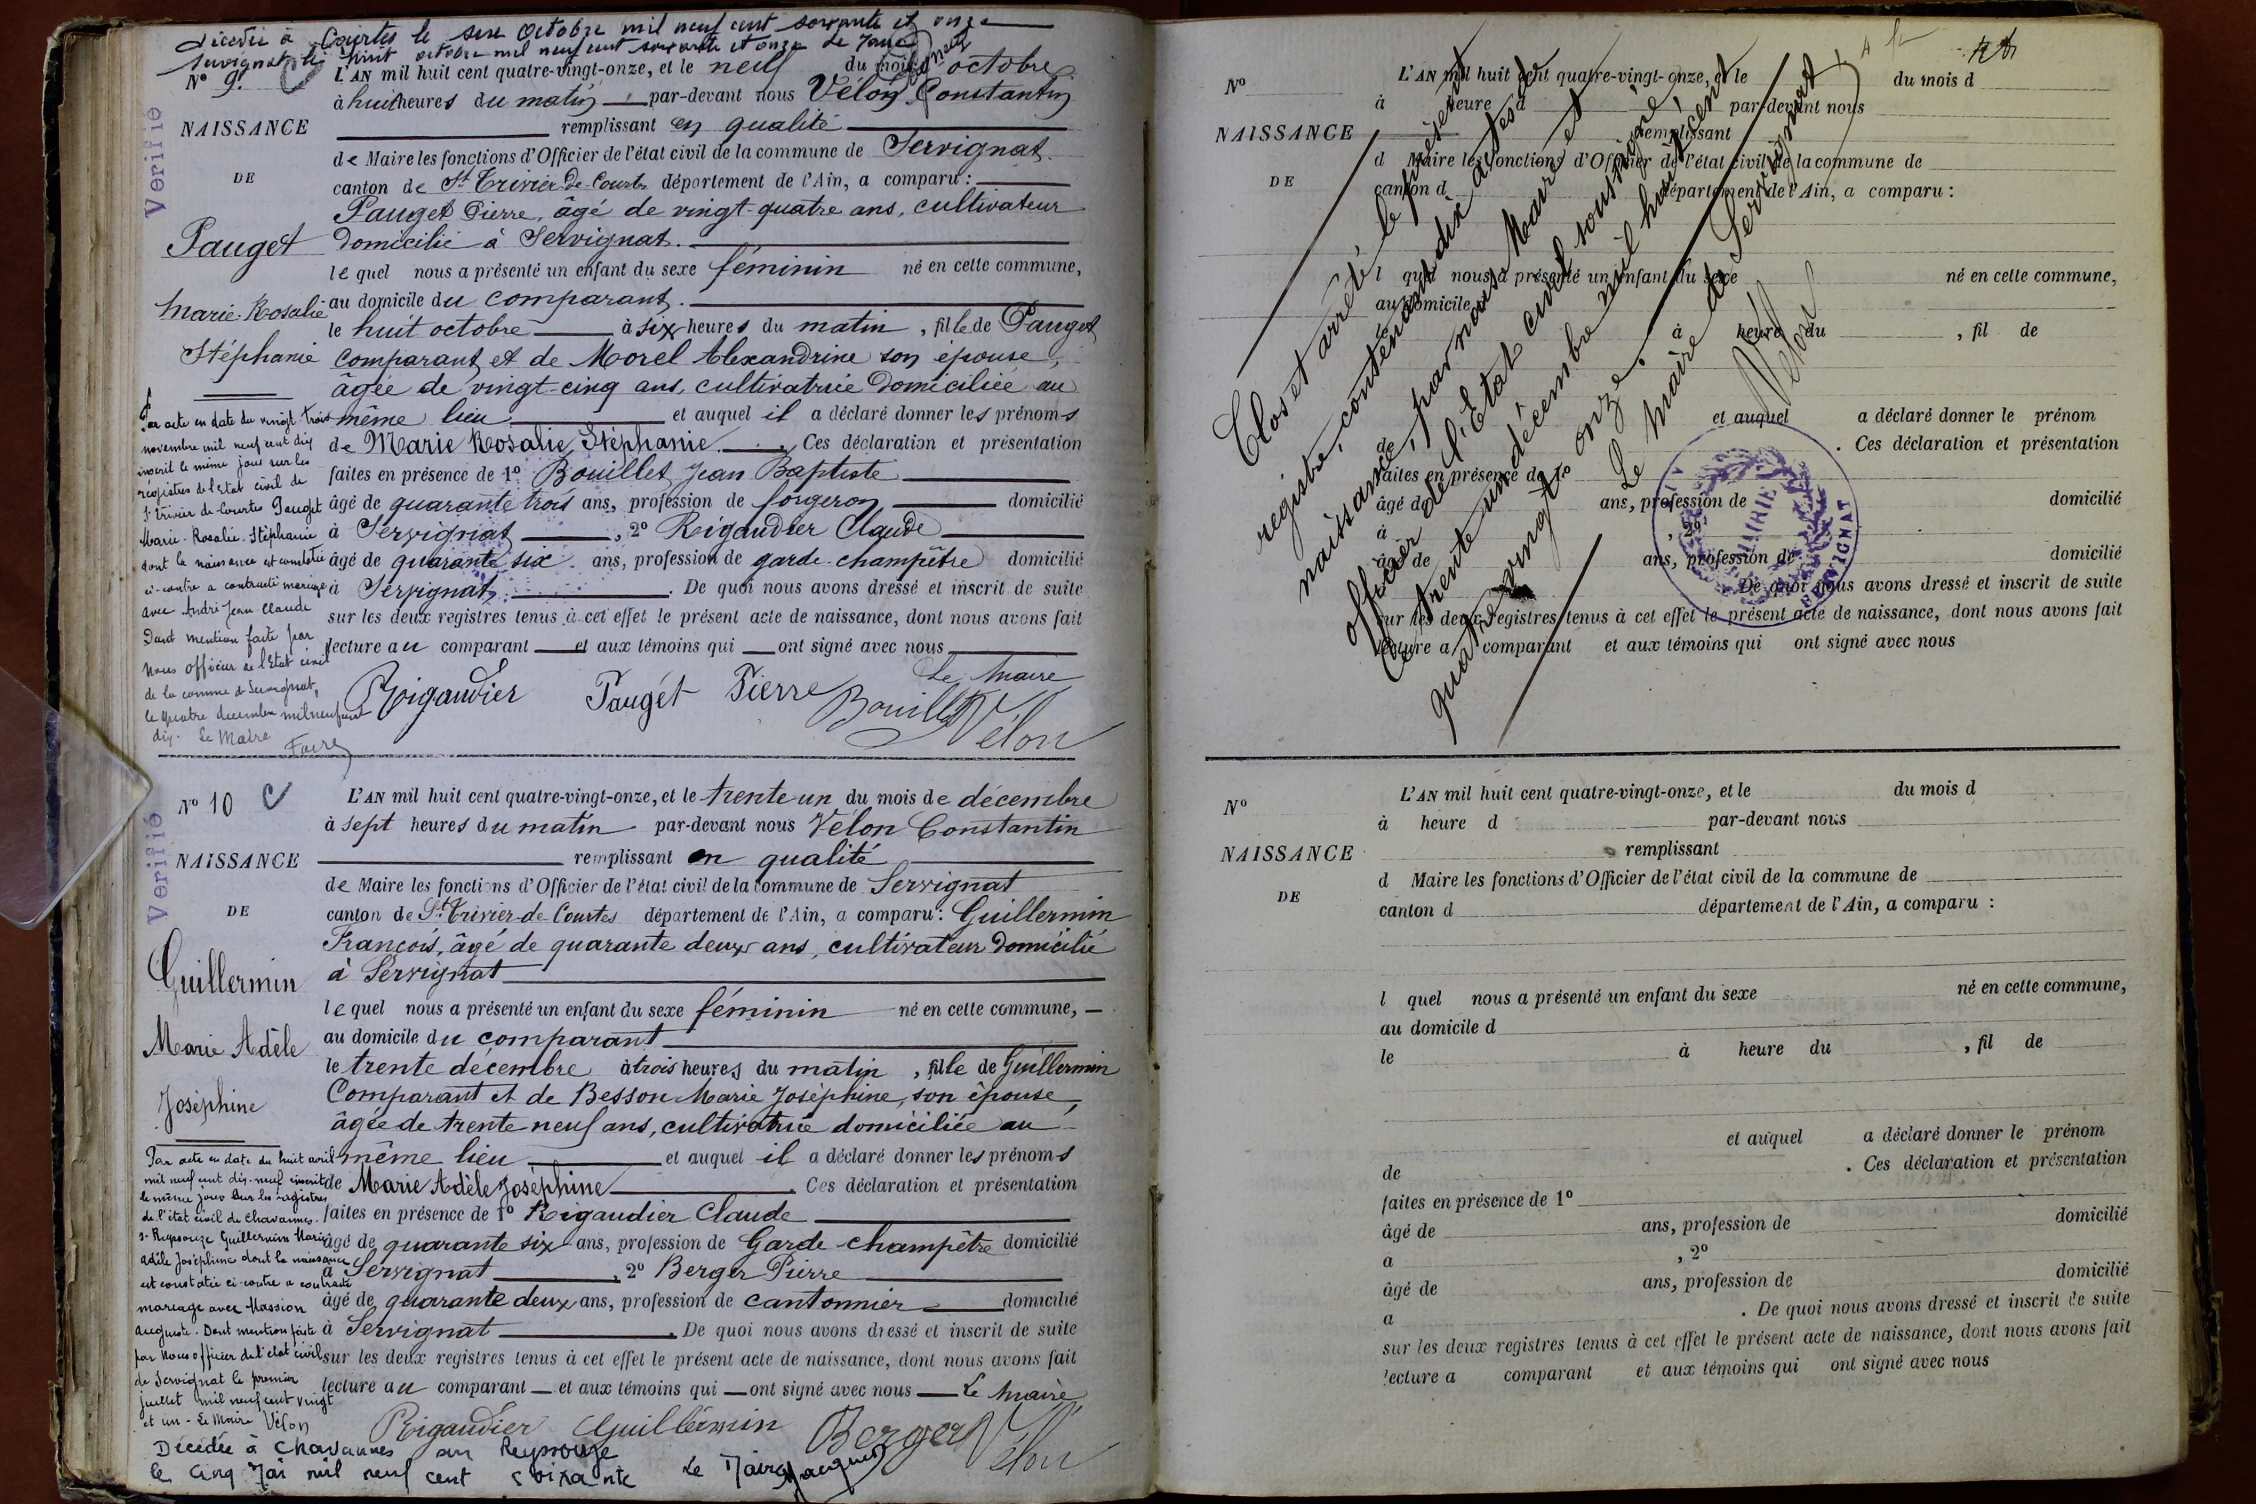 décédée à Courtes le seize Octobre mil neuf cent soixante et onze
Servignat le vingt octobre mil neuf cent soixante et onze Le Maire
N° 9.
L'AN mil huit cent quatre-vingt-onze, et le neuf du mois d'octobre
à huit heures du matin par-devant nous Vélon Constantin
NAISSANCE
remplissant en qualité
de Maire les fonctions d'Officier de l'état civil de la commune de Servignat
DE
canton de St Trivier-de-Courtes département de l'Ain, a comparu :
Pauget Pierre, âgé de vingt-quatre ans, cultivateur
Pauget
domicilié à Servignat.
le quel nous a présenté un enfant du sexe féminin né en cette commune,
Marie-Rosalie
au domicile du comparant.
le huit octobre à six heures du matin, fille de Pauget
Stéphanie
comparant et de Morel Alexandrine son épouse,
âgée de vingt-cinq ans, cultivatrice domiciliée au
même lieu et auquel il a déclaré donner les prénoms
de Marie Rosalie Stéphanie. Ces déclaration et présentation
faites en présence de 1° Bouillet Jean Baptiste
âgé de quarante trois ans, profession de forgeron domicilié
à Servignat, 2° Rigaudier Claude
âgé de quarante six ans, profession de garde-champêtre domicilié
à Servignat. De quoi nous avons dressé et inscrit de suite
sur les deux registres tenus à cet effet le présent acte de naissance, dont nous avons fait
lecture au comparant et aux témoins qui ont signé avec nous
Le Maire
Rigaudier Pauget Pierre Bouillet Vélon
Verifié
Par acte en date du vingt trois
novembre mil neuf cent dix
inscrit le même jour sur les
registres de l'Etat civil de
St Trivier-de-Courtes Pauget
Marie-Rosalie-Stéphanie
dont la naissance est constatée
ci-contre a contracté mariage
avec André Jean Claude
Dont mention faite par
Nous officier de l'Etat civil
de la commune de Servignat,
le quatre décembre mil neuf cent
dix. Le Maire
N° 10
L'AN mil huit cent quatre-vingt-onze, et le trente-un du mois de décembre
à sept heures du matin par-devant nous Vélon Constantin
NAISSANCE
remplissant en qualité
de Maire les fonctions d'Officier de l'état civil de la commune de Servignat
DE
canton de St Trivier-de-Courtes département de l'Ain, a comparu : Guillermin
François, âgé de quarante deux ans, cultivateur domicilié
Guillermin
à Servignat
le quel nous a présenté un enfant du sexe féminin né en cette commune,
Marie Adèle
au domicile du comparant
le trente décembre à trois heures du matin, fille de Guillermin
Joséphine
Comparant et de Besson Marie Joséphine, son épouse,
âgée de trente neuf ans, cultivatrice domiciliée au
même lieu et auquel il a déclaré donner les prénoms
de Marie Adèle Joséphine Ces déclaration et présentation
faites en présence de 1° Rigaudier Claude
âgé de quarante six ans, profession de Garde-champêtre domicilié
à Servignat, 2° Berger Pierre
âgé de quarante deux ans, profession de cantonnier domicilié
à Servignat. De quoi nous avons dressé et inscrit de suite
sur les deux registres tenus à cet effet le présent acte de naissance, dont nous avons fait
lecture au comparant et aux témoins qui ont signé avec nous Le Maire
Rigaudier Guillermin Berger Vélon
Verifié
Par acte en date du huit avril
mil neuf cent dix-neuf inscrit
le même jour sur les registres
de l'état civil de Chavannes-
s-Reyssouze Guillermin Marie
Adèle Joséphine dont la naissance
est constatée ci-contre a contracté
mariage avec Massion
Auguste. Dont mention faite
par Nous officier de l'état civil
de Servignat le premier
juillet mil neuf cent vingt
et un - Le Maire Vélon
Décédée à Chavannes sur Reyssouze
le cinq Mai mil neuf cent soixante Le Maire
N°
L'AN mil huit cent quatre-vingt-onze, et le du mois d
à heure d par-devant nous
NAISSANCE
remplissant
d Maire les fonctions d'Officier de l'état civil de la commune de
DE
canton d département de l'Ain, a comparu :
l quel nous a présenté un enfant du sexe né en cette commune,
au domicile d
le à heure du , fil de
et auquel a déclaré donner le prénom
de . Ces déclaration et présentation
faites en présence de 1°
âgé de ans, profession de domicilié
à , 2°
âgé de ans, profession de domicilié
à . De quoi nous avons dressé et inscrit de suite
sur les deux registres tenus à cet effet le présent acte de naissance, dont nous avons fait
lecture a comparant et aux témoins qui ont signé avec nous
Clos et arrêté le présent
registre, contenant dix actes de
naissance, par nous Maire et
officier de l'Etat civil soussigné
Ce trente un décembre mil huit cent
quatre vingt onze.
Le Maire de Servignat
Vélon
MAIRIE
SERVIGNAT
N°
L'AN mil huit cent quatre-vingt-onze, et le du mois d
à heure d par-devant nous
NAISSANCE
remplissant
d Maire les fonctions d'Officier de l'état civil de la commune de
DE
canton d département de l'Ain, a comparu :
l quel nous a présenté un enfant du sexe né en cette commune,
au domicile d
le à heure du , fil de
et auquel a déclaré donner le prénom
de . Ces déclaration et présentation
faites en présence de 1°
âgé de ans, profession de domicilié
a , 2°
âgé de ans, profession de domicilié
a . De quoi nous avons dressé et inscrit de suite
sur les deux registres tenus à cet effet le présent acte de naissance, dont nous avons fait
lecture a comparant et aux témoins qui ont signé avec nous